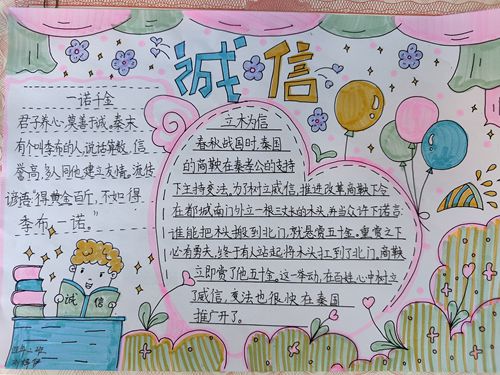 诚信
一诺千金
君子养心,莫善于诚。秦末
有个叫季布的人,说话算数,信
誉高,多人同他建立友情。流传
谚语"得黄金百斤,不如得
季布一诺。"
立木为信
春秋战国时,秦国
的商鞅在秦孝公的支持
下主持变法。为了树立威信,推进改革,商鞅下令
在都城南门外立一根三丈长的木头,并当众许下诺言:
谁能把木搬到北门,就悬赏五十金。重赏之下
必有勇夫,终于有人站起将木头扛到了北门,商鞅
立即赏了他五十金。这一举动,在百姓心中树立
了威信,变法也很快在秦国
推广开了。
诚信
二班